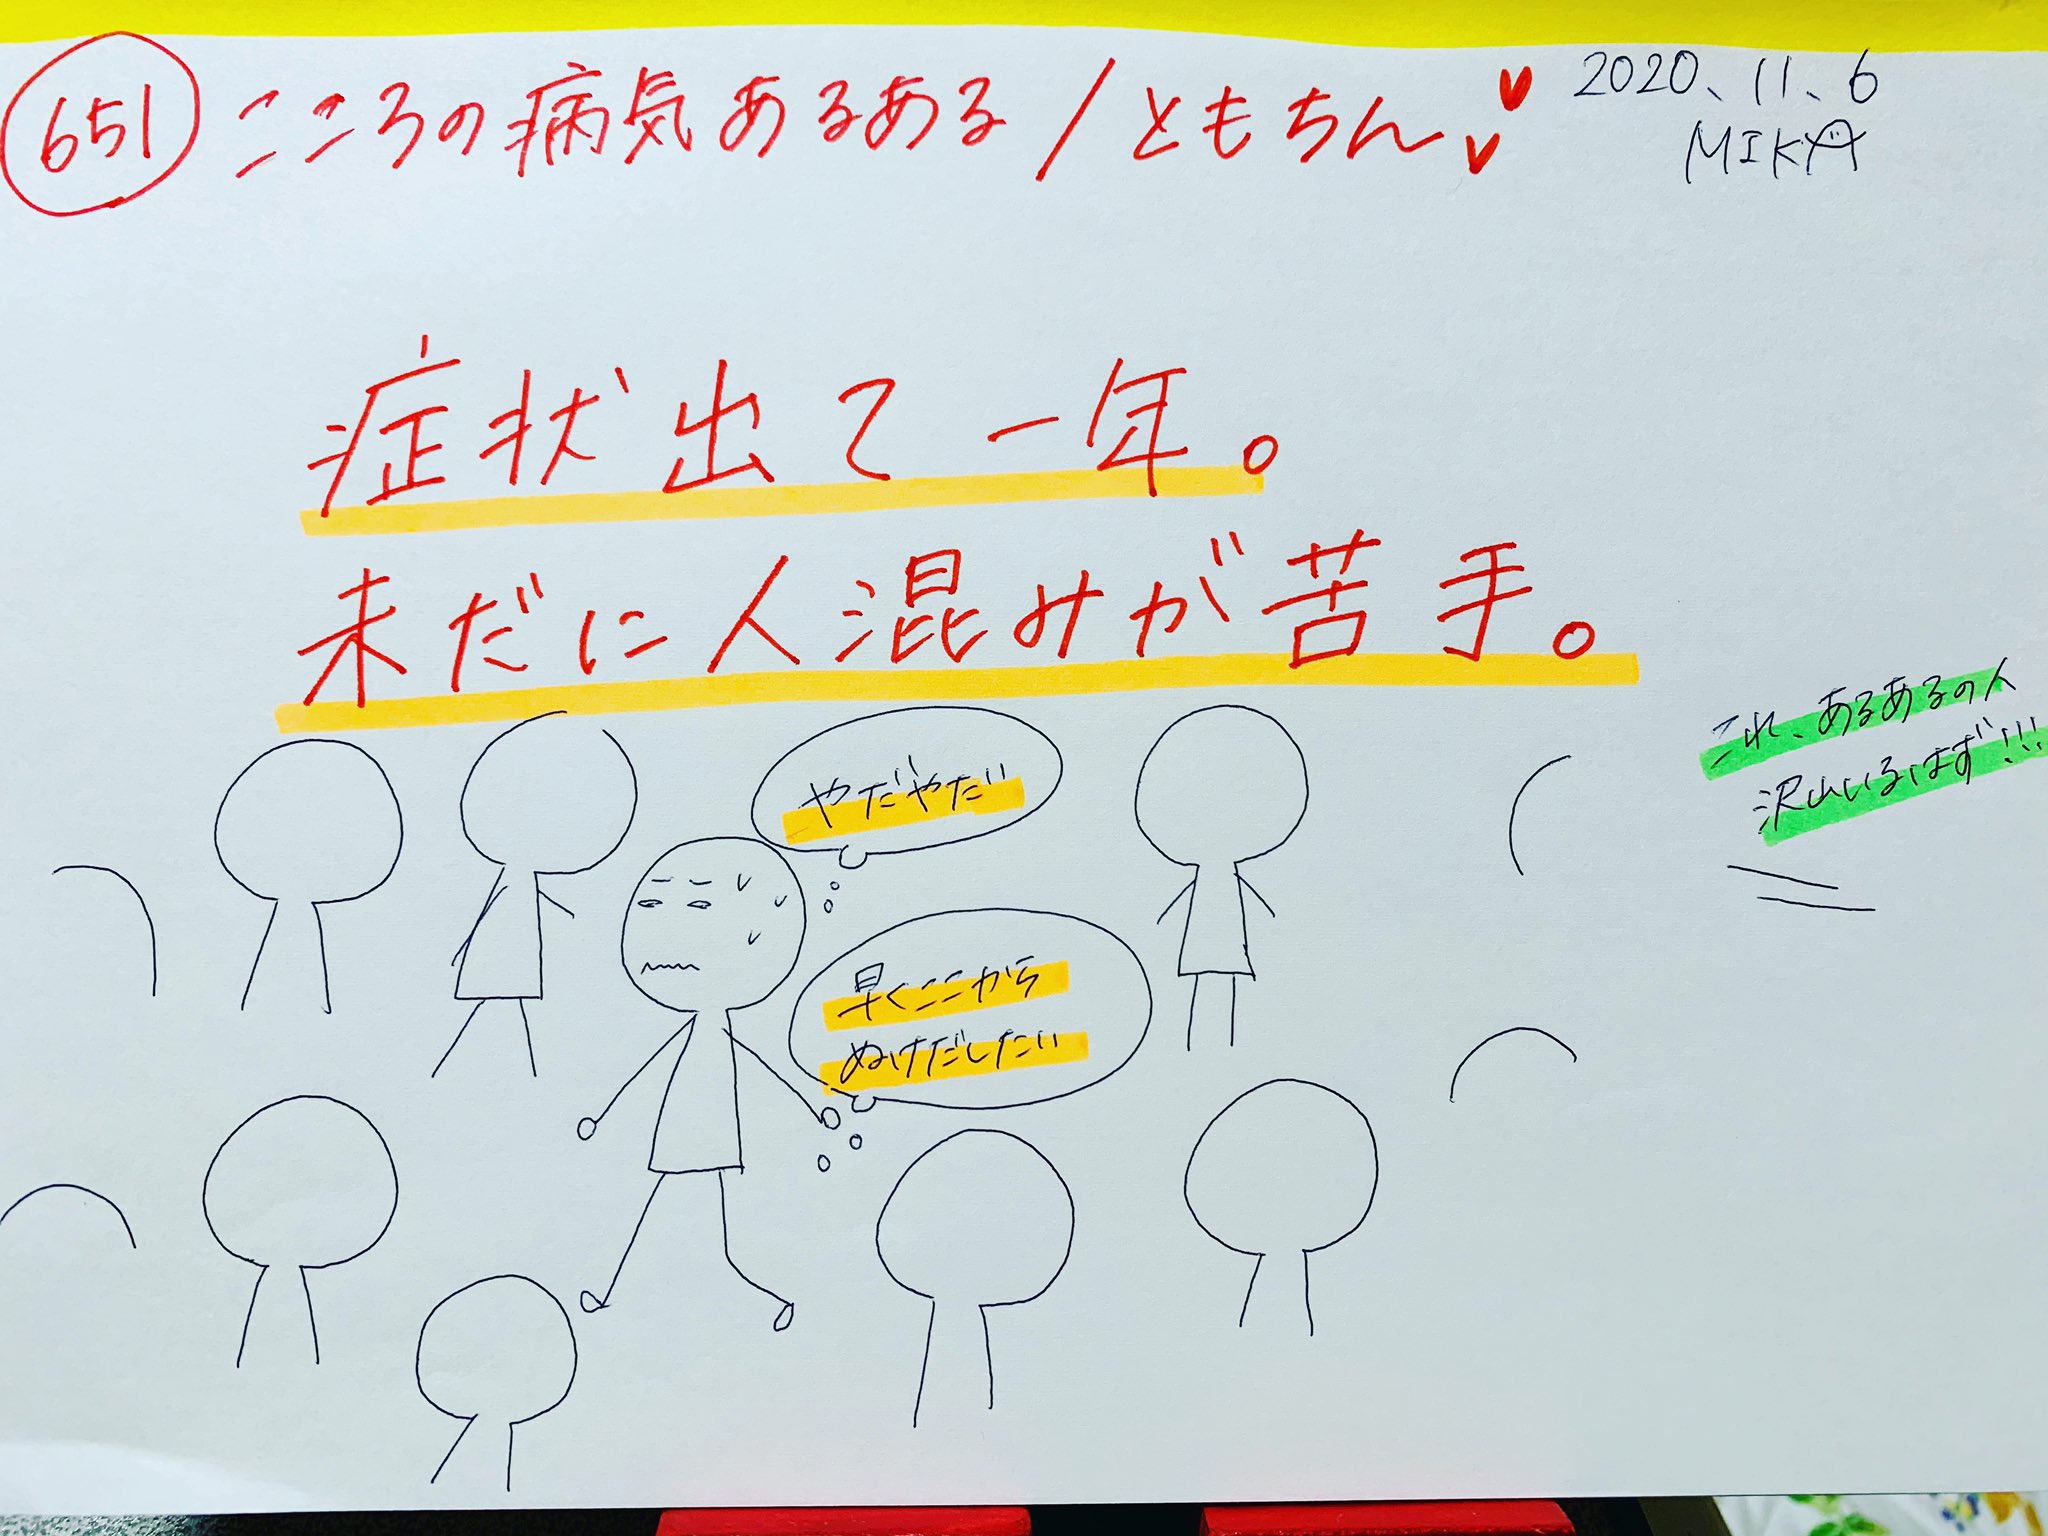 651 こころの病気あるある/ともちん
2020、11、6
MIKA
症状出て一年。
未だに人混みが苦手。
これ、あるあるの人
沢山いるはず!!!
やだやだ
早くここから
ぬけだしたい